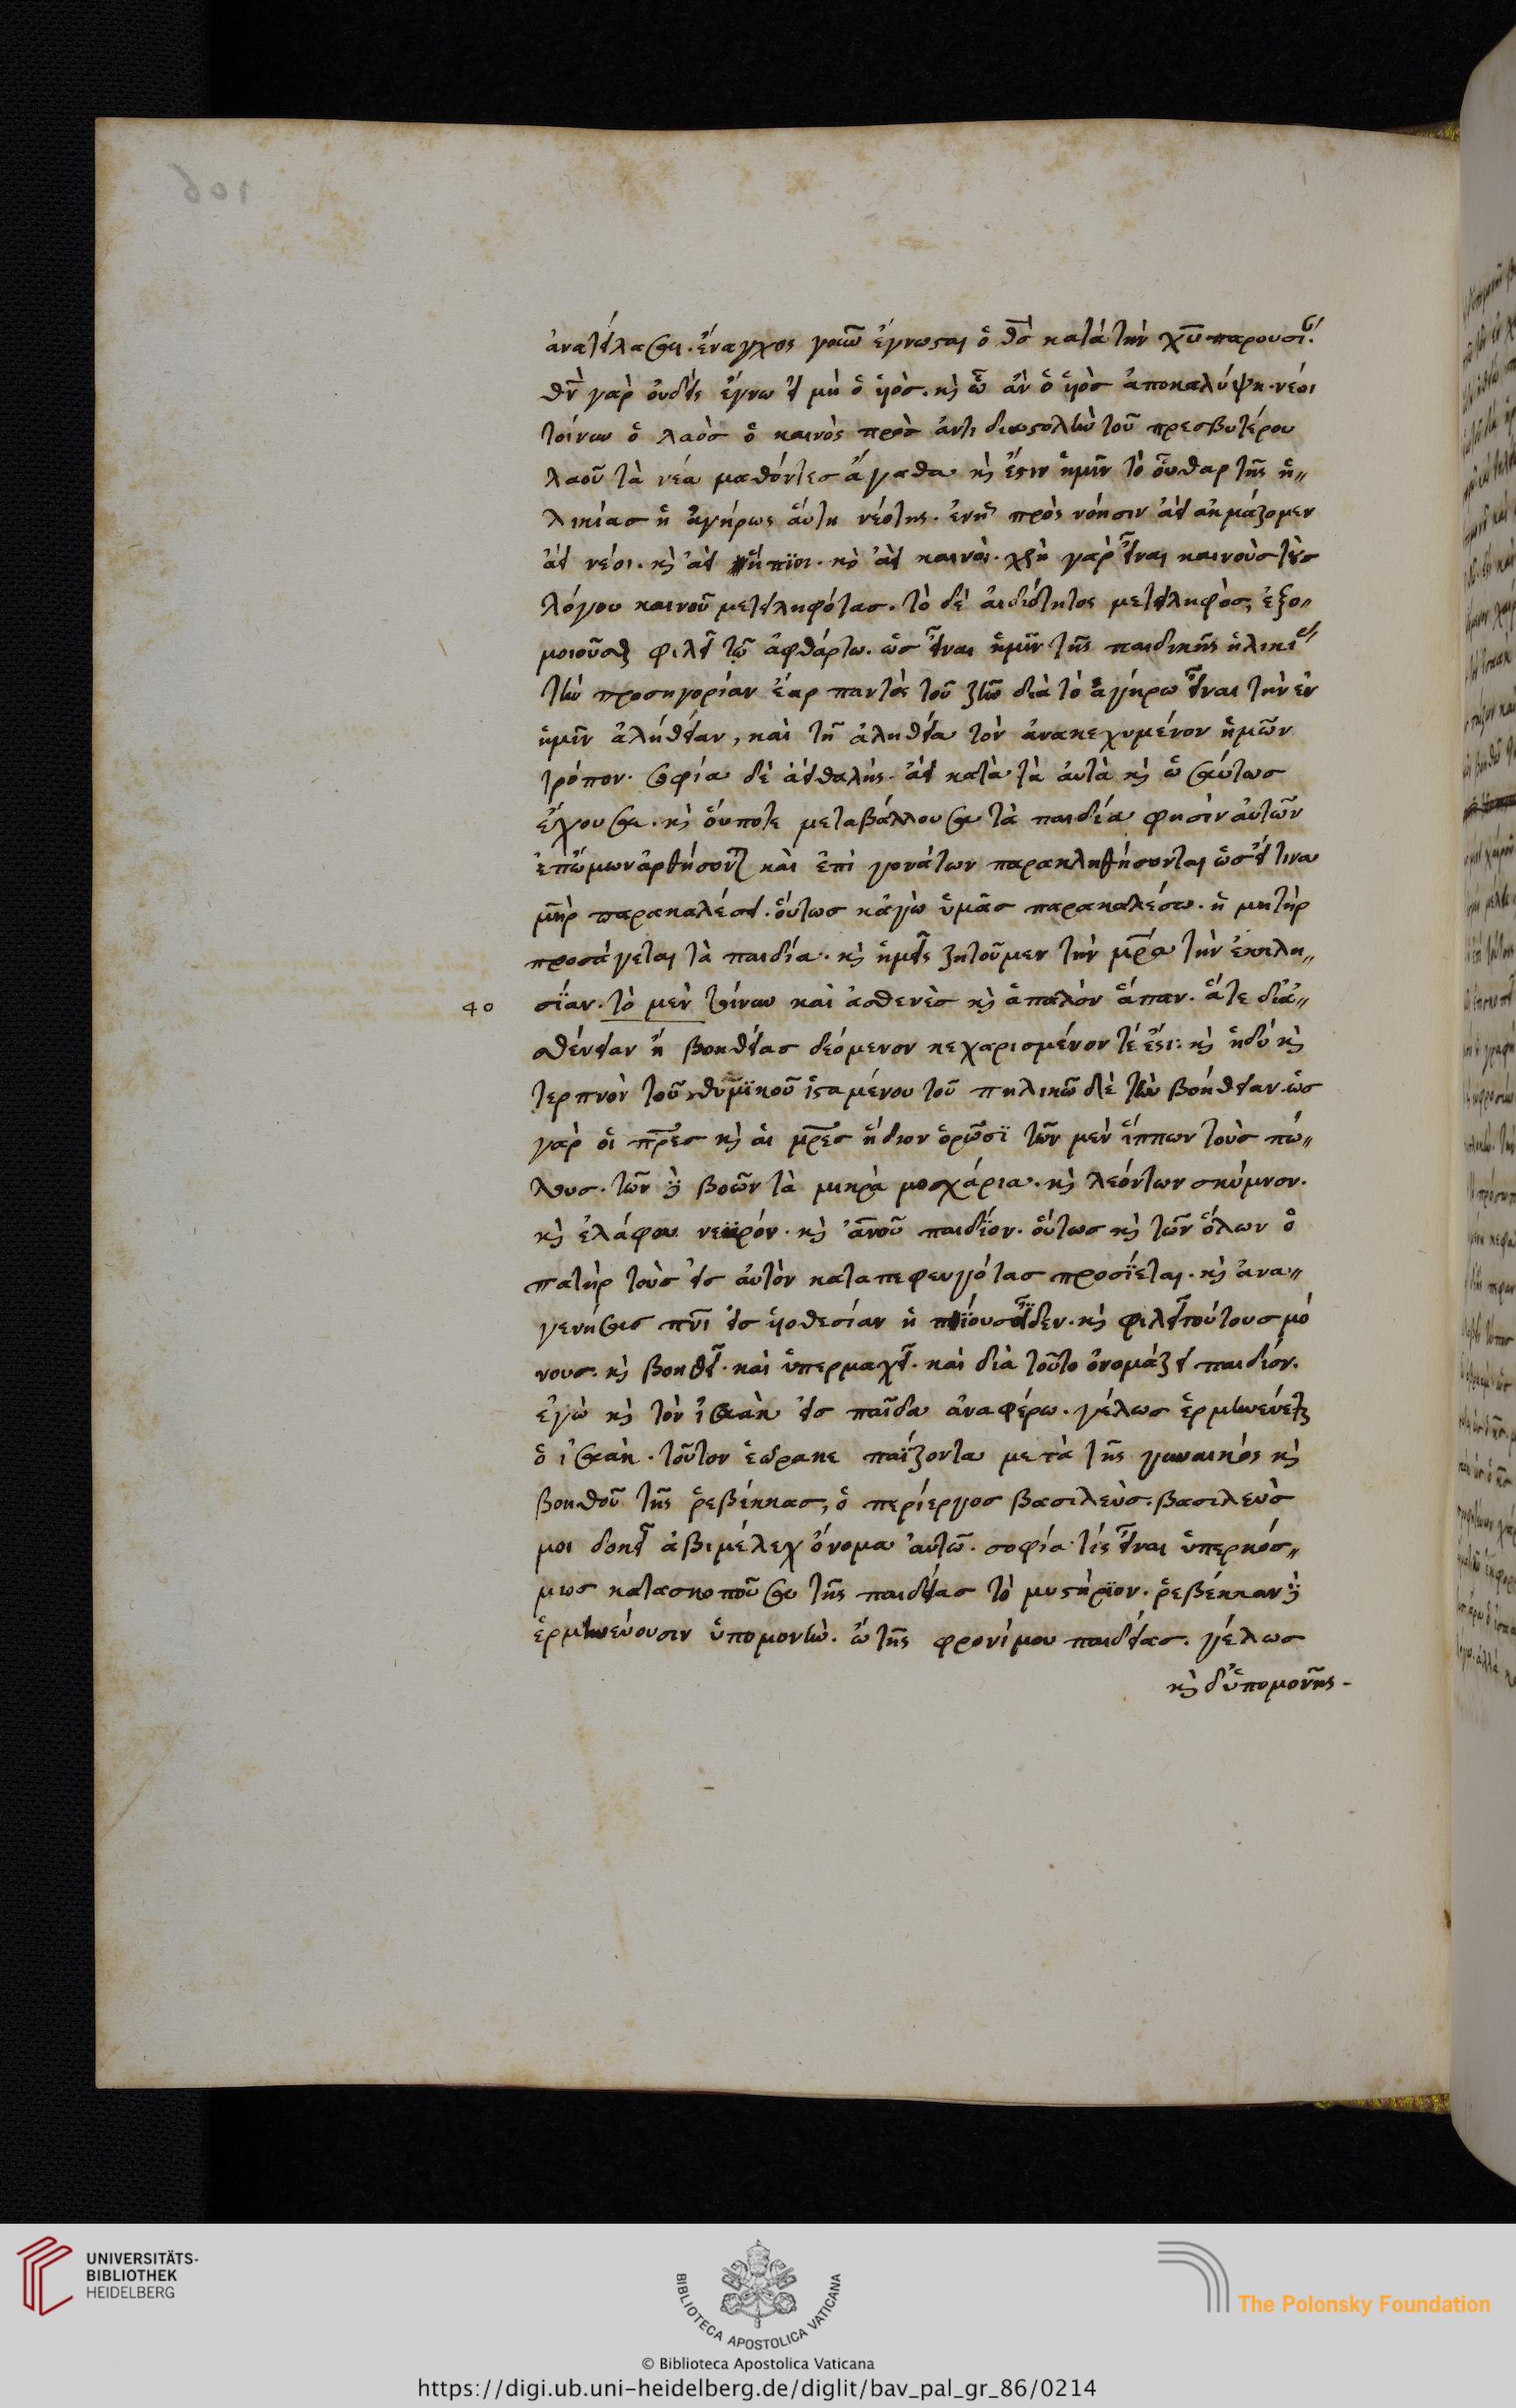 106
ἀνατείλασαι. ἔναγχος γοῦν ἔγνωσται ὁ θς κατὰ τὴν χυ παρουσί.
θν γὰρ οὐδεὶς ἔγνω εἰ μὴ ὁ ὑιὸς. κὶ ὧ ἂν ὁ ὑιὸς ἀποκαλύψη. νέοι
τοίνυν ὁ λαὸς ὁ καινὸς πρὸς ἀντιδιαστολὴν τοῦ πρεσβυτέρου
λαοῦ τὰ νέα μαθόντες ἀγαθα κὶ ἔστιν ἡμῖν τὸ οὖθαρ τῆς ἡ〃
λικίας ἡ ἀγήρως αὕτη νεότης. ἐν ἧ πρὸς νόησιν ἀεὶ ἀκμάζομεν
ἀεὶ νέοι. κὶ ἀεὶ ἤπϊοι. κὶ ἀεὶ καινοὶ. χρὴ γὰρ εἶναι καινοὺς τοὺς
λόγου καινοῦ μετειληφότας. τὸ δὲ ἀιδιότητος μετειληφὸς, ἐξο〃
μοιοῦσθαι φιλεῖ τῶ ἀφθάρτω. ὡς εἶναι ἡμῖν τῆς παιδικῆς ἡλικί
τὴν προσηγορίαν ἔαρ παντὸς τοῦ ζῆν διὰ τὸ ἀγήρω εἶναι τὴν ἐν
ἡμῖν ἀλήθειαν, καὶ τῆ ἀληθεία τὸν ἀνακεχυμένον ἡμῶν
τρόπον. σοφία δὲ ἀειθαλὴς. ἀεὶ κατὰ τὰ ἀυτὰ κὶ ὡσαύτως
ἔχουσα. κὶ οὔποτε μεταβάλλουσα τὰ παιδία φησὶν ἀυτῶν
ἐπώμων ἀρθήσονται καὶ ἐπὶ γονάτων παρακληθήσονται ὡσεί τινα
μηρ παρακαλέσει. οὕτως κἀγὼ ὑμᾶς παρακαλέσω. ἡ μητὴρ
προσάγεται τὰ παιδία. κὶ ἡμεῖς ζητοῦμεν τὴν μρα τὴν ἐκκλη〃
40 σίαν. τὸ μὲν τοίνυν καὶ ἀσθενὲς κὶ ἁπαλὸν ἅπαν. ἅτε δἰ ἀ〃
σθένειαν ἢ βοηθείας δεόμενον κεχαρισμένον τέ ἐστι: κὶ ἡδὺ κὶ
τερπνὸν τοῦ θυμϊκοῦ ἱσταμένου τοῦ πηλικοῦ δὲ τὴν βοήθειαν. ὡς
γὰρ οἱ πρες κὶ αἱ μρες ἥδιον ὁρῶσϊ τῶν μὲν ἵππων τοὺς πώ〃
λους. τῶν δὲ βοῶν τὰ μικρὰ μοσχάρια. κὶ λεόντων σκύμνον.
κὶ ἐλάφου νεβρόν. κὶ ἀνου παιδίον. οὕτως κὶ τῶν ὅλων ὁ
πατὴρ τοὺς εἰς ἀυτὸν καταπεφευγότας προσίεται. κὶ ἀνα〃
γενήσας πνι εἰς ὑιοθεσίαν ἠπίους οἶδεν. κὶ φιλεῖ τούτους μό
νους. κὶ βοηθεῖ. καὶ ὑπερμαχεῖ. καὶ διὰ τοῦτο ὀνομάζει παιδίον.
ἐγὼ κὶ τὸν ἰσαὰκ εἰς παῖδα ἀναφέρω. γέλως ἑρμηνεύεται
ὁ ἰσαὰκ. τοῦτον ἑώρακε παίζοντα μετὰ τῆς γυναικὸς κὶ
βοηθοῦ τῆς ῥεβέκκας, ὁ περίεργος βασιλεὺς. βασιλεὺς
μοι δοκεῖ ἀβιμέλεχ ὄνομα ἀυτῶ. σοφία τὶς εἶναι ὑπερκόσ〃
μιος κατασκοποῦσα τῆς παιδείας τὸ μυστήριον. ῥεβέκκαν δὲ
ἑρμηνεύουσιν ὑπομονὴν. ὢ τῆς φρονίμου παιδείας. γέλως
κὶ δι' ὑπομονῆς.
UNIVERSITÄTS-
BIBLIOTHEK
HEIDELBERG
BIBLIOTECA APOSTOLICA VATICANA
The Polonsky Foundation
© Biblioteca Apostolica Vaticana
https://digi.ub.uni-heidelberg.de/diglit/bav_pal_gr_86/0214